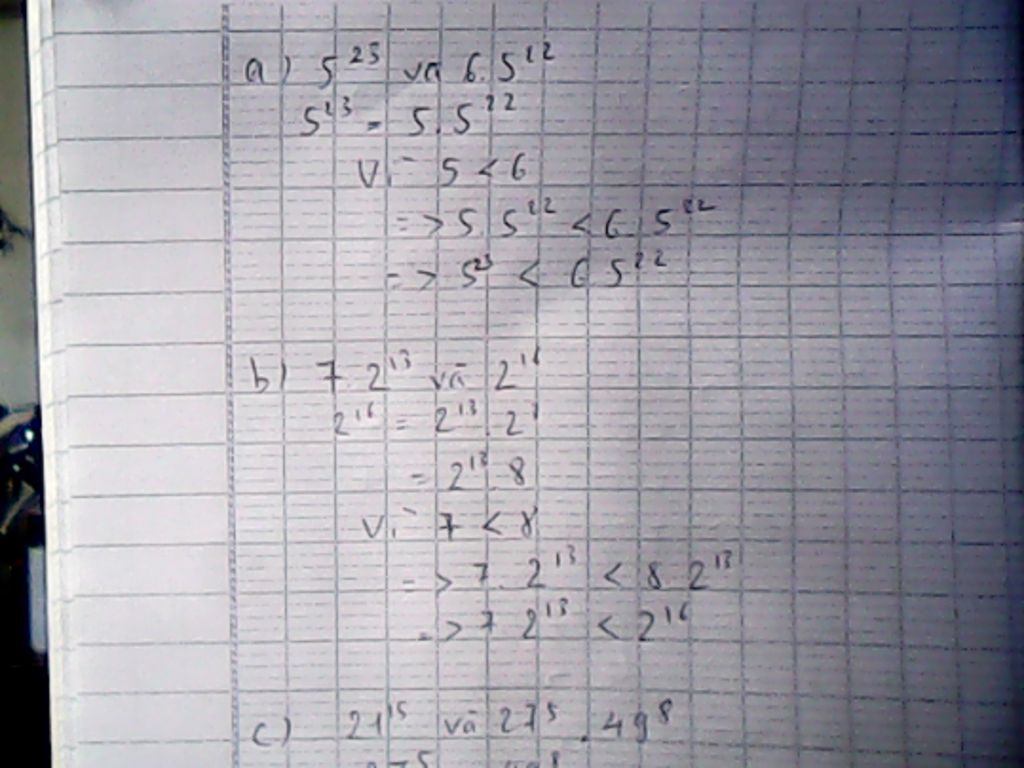 a) 5²³ và 6.5²²
5²³ = 5.5²²
Vì 5 < 6
=> 5.5²² < 6.5²²
=> 5²³ < 6.5²²
b) 7.2¹³ và 2¹⁶
2¹⁶ = 2¹³.2³
= 2¹³.8
Vì 7 < 8
=> 7.2¹³ < 8.2¹³
=> 7.2¹³ < 2¹⁶
c) 21¹⁵ và 27⁵.49⁸